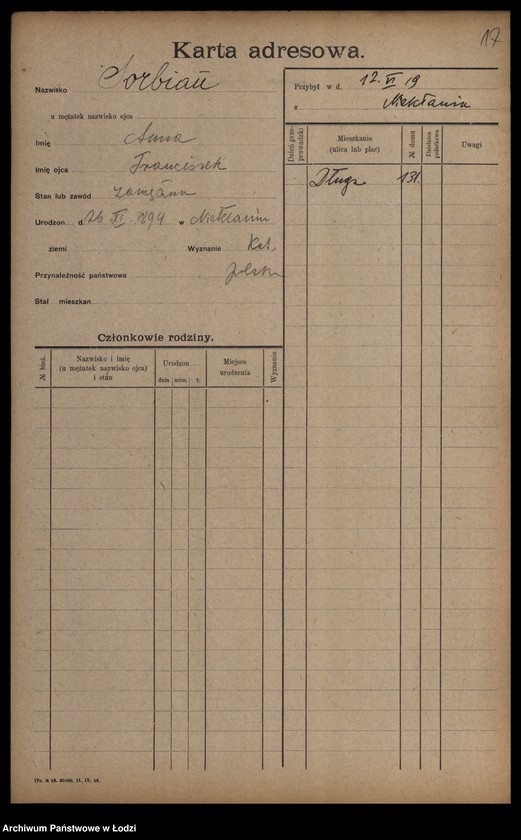 17
Karta adresowa.
Nazwisko Sorbian
u mężatek nazwisko ojca
Imię Anna
Imię ojca Franciszek
Stan lub zawód zamężna
Urodzon d. 26 XI. 1894 w Niekłaniu
ziemi Wyznanie Kat.
Przynależność państwowa polska
Stał. mieszkan
Członkowie rodziny.
№ bież. Nazwisko i imię (u mężatek nazwisko ojca) i stan Urodzon dnia mies. r. Miejsce urodzenia Wyznanie
Przybył w d. 12. VI 19
z Niekłania
Dzień przeprowadzki Mieszkanie (ulica lub plac) № domu Dzielnica podatkowa Uwagi
Długa 131.
Archiwum Państwowe w Łodzi